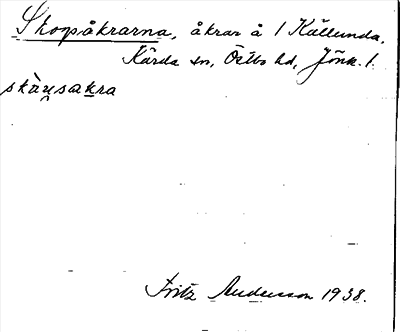 Skogsåkrarna, åkrar å 1 Källunda,
Kärda sn, Östbo hd, Jönk. l.
skàu̯sakra
Fritz Andersson 1938.